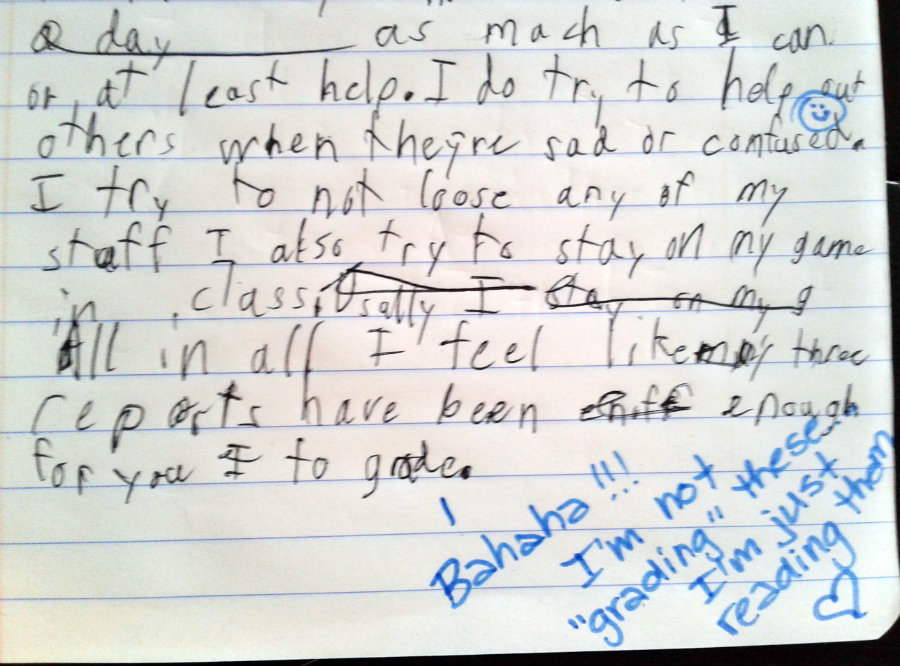 a day as mach as I can.
or, at least help. I do try to help out
others when they're sad or confused.
I try to not loose any of my
staff I also try to stay on my game
in class. Usally I stay on my g
All in all I feel like my three
reports have been enough
for you I to grade.
Bahaha!!!
I'm not
"grading" these.
I'm just
reading them